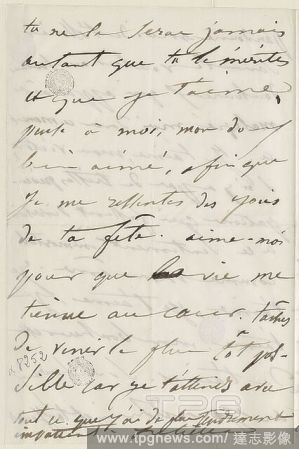 tu ne le seras jamais
autant que tu le mérites
et que je t'aime,
pense à moi, mon doux
bien aimé, afin que
je me ressente des joies
de ta fête. aime-moi
pour que la vie me
tienne au coeur. tâche
de venir le plus tôt pos-
sible car je t'attends avec
tout ce que j'ai de plus tendrement
a 8252
TPG
www.tpgnews.com/達志影像